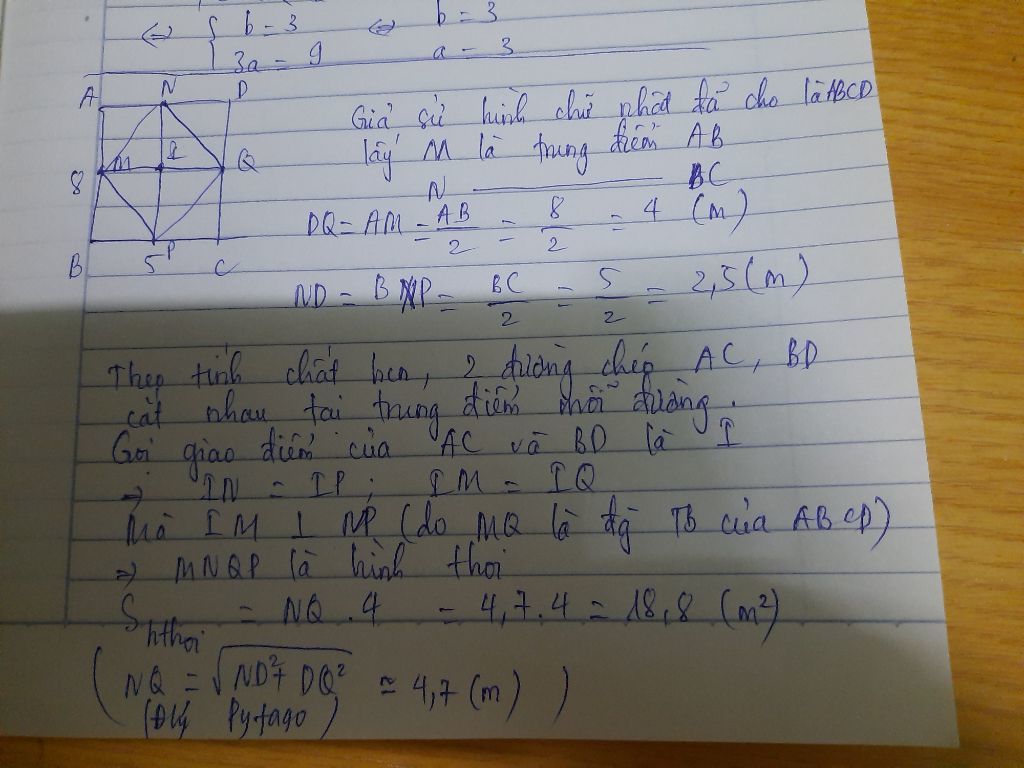 ⇔ { b = 3 ⇔ b = 3
3a = 9 a = 3
A N D
M I Q
8
B 5 P C
Giả sử hình chữ nhật đã cho là ABCD
lấy M là trung điểm AB
N ———— BC
DQ = AM = AB/2 = 8/2 = 4 (m)
ND = BP = BC/2 = 5/2 = 2,5 (m)
Theo tính chất hcn, 2 đường chép AC, BD
cắt nhau tại trung điểm mỗi đường.
Gọi giao điểm của AC và BD là I
⇒ IN = IP ; IM = IQ
Mà IM ⊥ NP (do MQ là đg TB của ABCD)
⇒ MNQP là hình thoi
S hthoi = NQ . 4 = 4,7 . 4 = 18,8 (m²)
( NQ = √ND² + DQ² ≃ 4,7 (m) )
(Đlý Pytago)